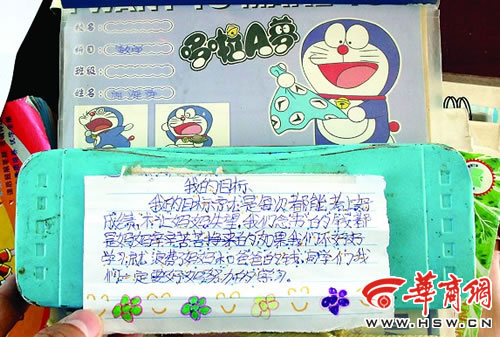 WANT TO MAKE
校名:
科目: 数学
班级:
姓名:
哆啦A梦
我的目标、
我的目标 是每次都能考上好
成绩,不让妈妈失望,我们念书的钱都
是妈妈辛辛苦苦挣来的如果我们不好好
学习就浪费妈妈和爸爸的钱,同学们我
们一定要好好努力的学习.
华商网
WWW.HSW.CN